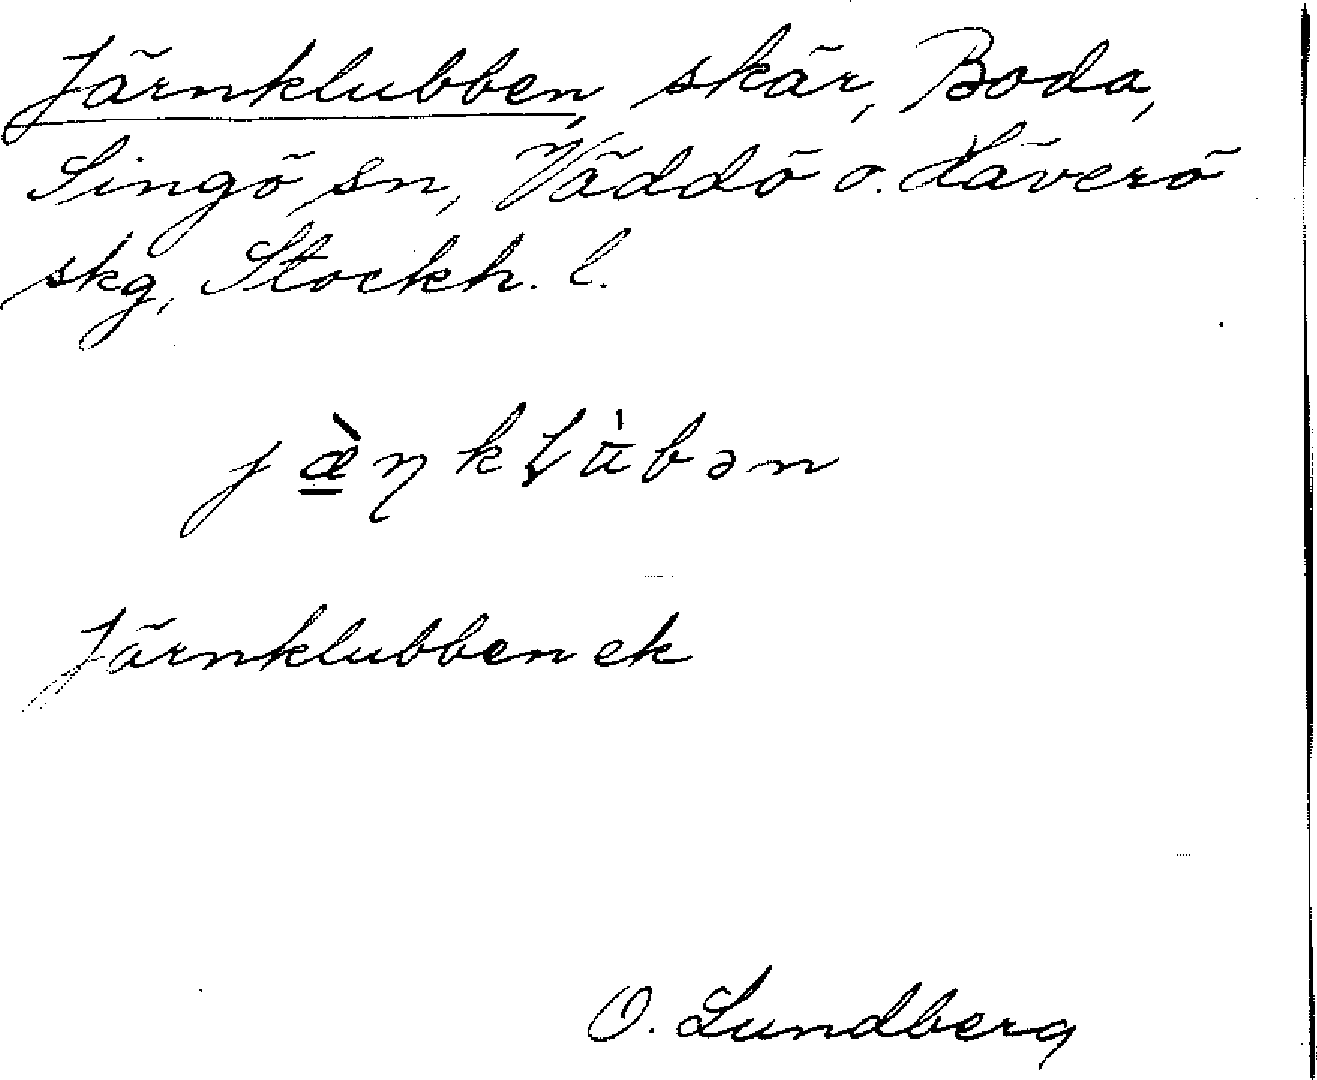 Järnklubben, skär, Boda,
Singö sn, Väddö o. Häverö
skg, Stockh. l.
jæ̀ŋkLùbən
Järnklubben ek
O. Lundberg